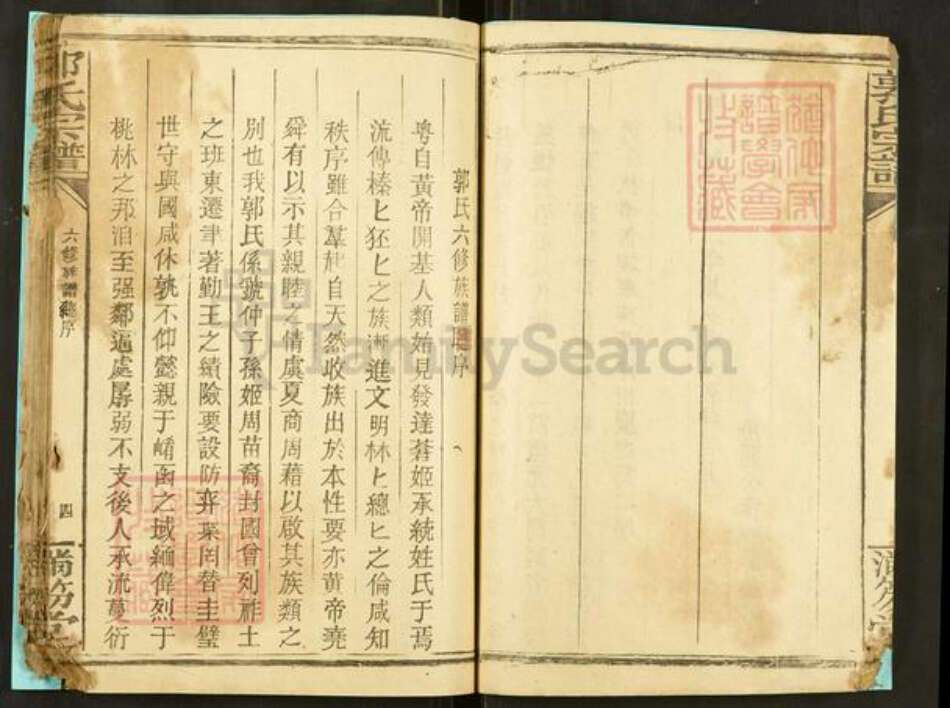 郭氏宗譜
滿笏堂
郭氏六修族譜總序
粵自黃帝開基人類始見發達蒼姬承統姓氏于焉
流傳榛匕狉匕之族漸進文明林匕總匕之倫咸知
秩序雖合羣起自天然收族出於本性要亦黃帝堯
舜有以示其親睦之情虞夏商周藉以啟其族類之
別也我郭氏係虢仲子孫姬周苗裔封國曾列胙土
之班東遷聿著勤王之績險要設防弃葉罔替圭璧
世守與國咸休孰不仰懿親于崤函之域緬偉烈于
桃林之邦洎至强鄰逼處孱弱不支後人承流蔓衍
郭氏宗譜
六修族譜總序
四
滿笏堂
FamilySearch